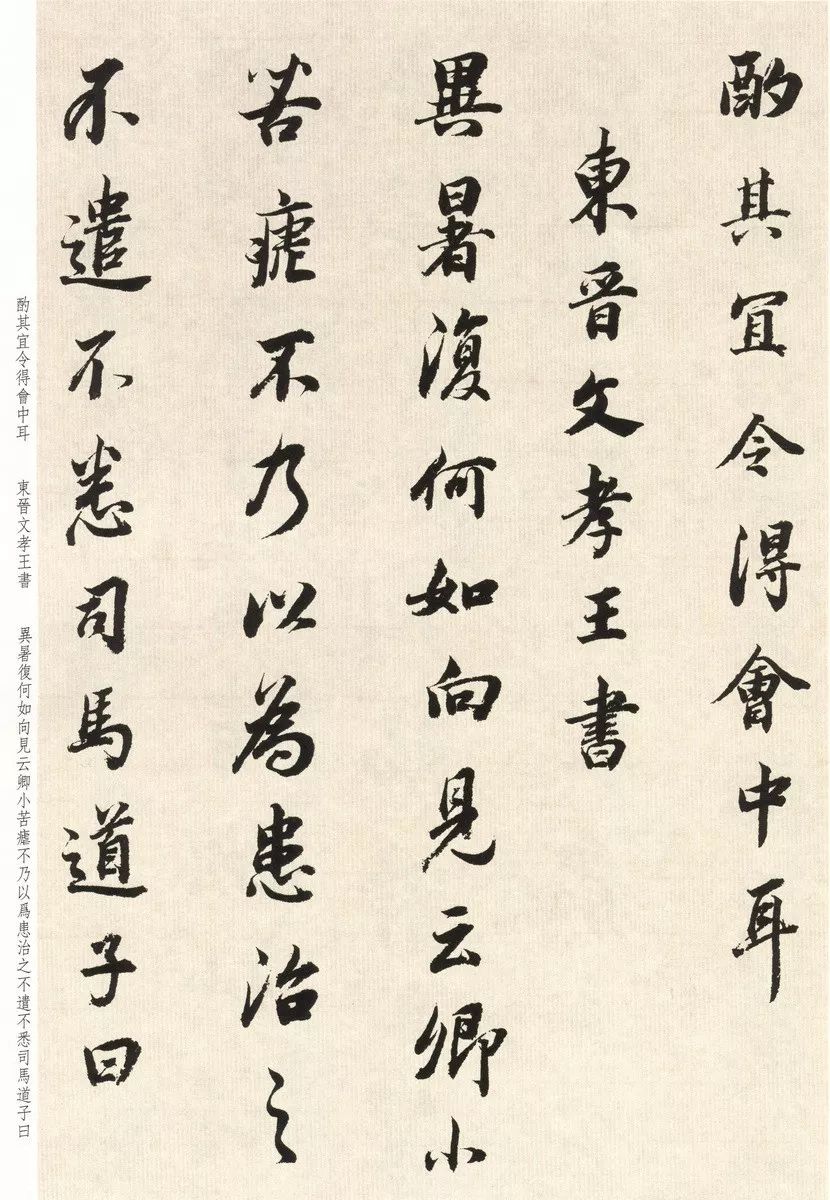 酌其宜令得會中耳
東晉文孝王書
異暑復何如向見云卿小
苦瘧不乃以為患治之
不遣不悉司馬道子曰
酌其宜令得會中耳　東晉文孝王書　異暑復何如向見云卿小苦瘧不乃以爲患治之不遣不悉司馬道子曰